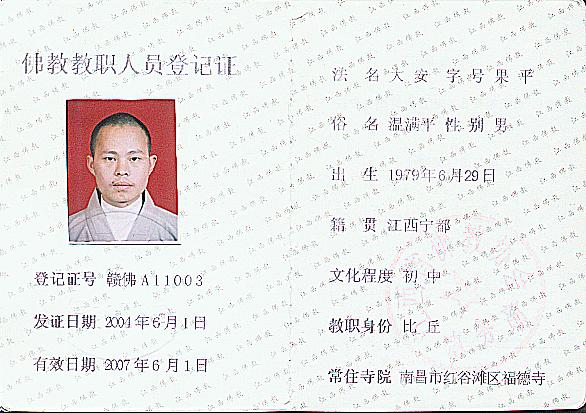 佛教教职人员登记证
登记证号 赣佛A11003
发证日期 2004年6月1日
有效日期 2007年6月1日
法 名 大安 字号 果平
俗 名 温满平 性别 男
出 生 1979年6月29日
籍 贯 江西宁都
文化程度 初中
教职身份 比丘
常住寺院 南昌市红谷滩区福德寺